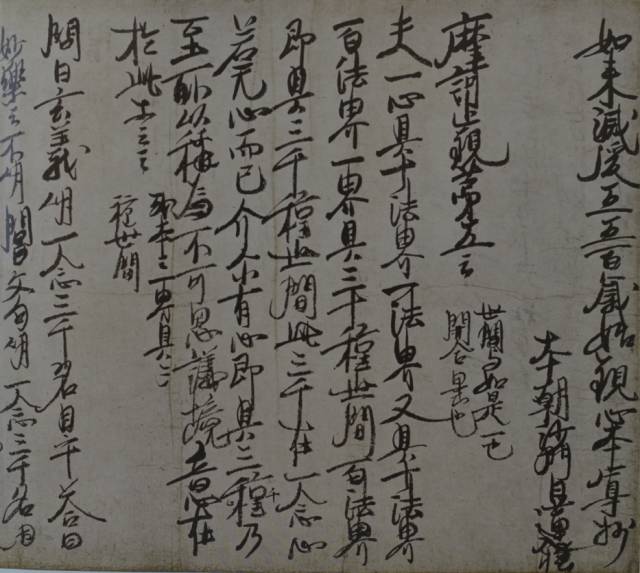 如来滅後五五百歳始観心本尊抄
本朝沙門日蓮撰
摩訶止観第五云
世間与如是一也
開合異也
夫一心具十法界一法界又具十法界
百法界一界具三十種世間百法界
即具三千種世間此三千在一念心
若无心而已介尓有心即具三千乃
至所以称為不可思議境意在
於此等云云
或本云一界具三
種世間
問曰玄義明一念三千名目乎答曰
妙楽云不明問曰文句明一念三千名目